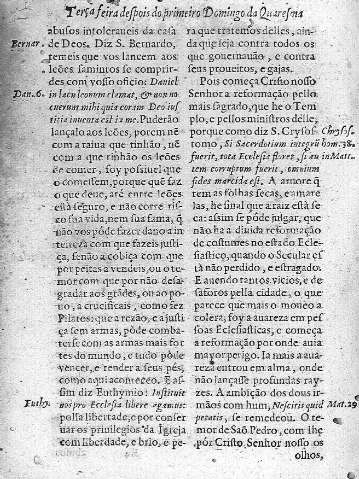 Terça feira despois do primeiro Domingo da Quaresma
abusos intoleraveis da casa
Bernar. de Deos. Diz S. Bernardo,
temeis que vos lancem aos
leões famintos se comprir-
des com vosso officio: Daniel
Dan. 6. in lacu leonum elamat, & non no
cuerunt mihi quia coram Deo ius
titia inuenta est in me. Puderão
lançalo aos leões, porem nẽ
com a raiua que tinhão, nẽ
com a que tinhão os leões
de comer, foy possiuel que
o comessem, porque quẽ faz
o que deue, atè entre leões
està seguro, e não corre ris-
co sua vida, nem sua fama, q̃
não vos pòde fazer dano a in
tereza com que fazeis justi-
ça, senão a cobiça com que
por peitas a vendeis, ou o te-
mor com que por não desa-
gradar aos grãdes, ou ao po-
uo, a crucificais, como fez
Pilatos: que a rezão, e a justi
ça sem armas, pòde comba-
terse com as armas mais for
tes do mundo, e tudo pòde
vencer, e render a seus pès,
como aqui aconteceo. E as-
sim diz Euthymio: Instituit
Euthy. nos pro Ecclesia libere agamus:
possa liberdade, o por conser
uar os priuilegios da Igreja
com liberdade, e brio, e pe-
ra que tratemos delles, ain-
da que seja contra todos os
que gouernauão, e contra
seus proueitos, e gajas.
Pois começa Christo nosso
Senhor a reformação pello
mais sagrado, que he o Tem
plo, e pellos ministros delle,
porque como diz S. Crysos- Chryss.
tomo, Si Sacerdotium integrũ hom. 38.
fuerit, tota Ecclesia floret, si au in Matt.
tem corruptum fuerit, omnium
fides marcida est. A aruore q̃
tem as folhas secas, e amare
las, he sinal que a raiz està se
ca: assim se pòde julgar, que
não ha a diuida reformação
de costumes no estado Ecle-
siastico, quando o Secular es
tà não perdido, e estragado.
E auendo tantos vicios, e de
saforos pella cidade, o que
parece que mais o moueo a
colera, foy a auareza em pes
soas Ecclesiasticas, e começa
a reformação por onde auia
mayor perigo. Ia mais a aua
reza entrou em alma, onde
não lançasse profundas ray-
zes. A ambição dos dous ir
mãos com hum, Nescitis quid Mat. 20
petatis, se remedeou. O te-
mor de São Pedro, com lhe
pòr Cristo Senhor nosso os
olhos,